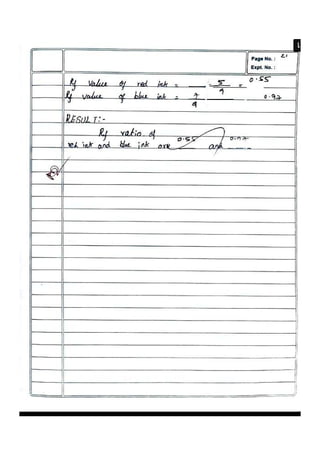 Page No. : 21
Expt. No. :
Rf value of red ink = 5 = 0.55
9
Rf value of blue ink = 0.92
9
RESULT:-
Rf ratio of
red ink and blue ink are 0.55 and